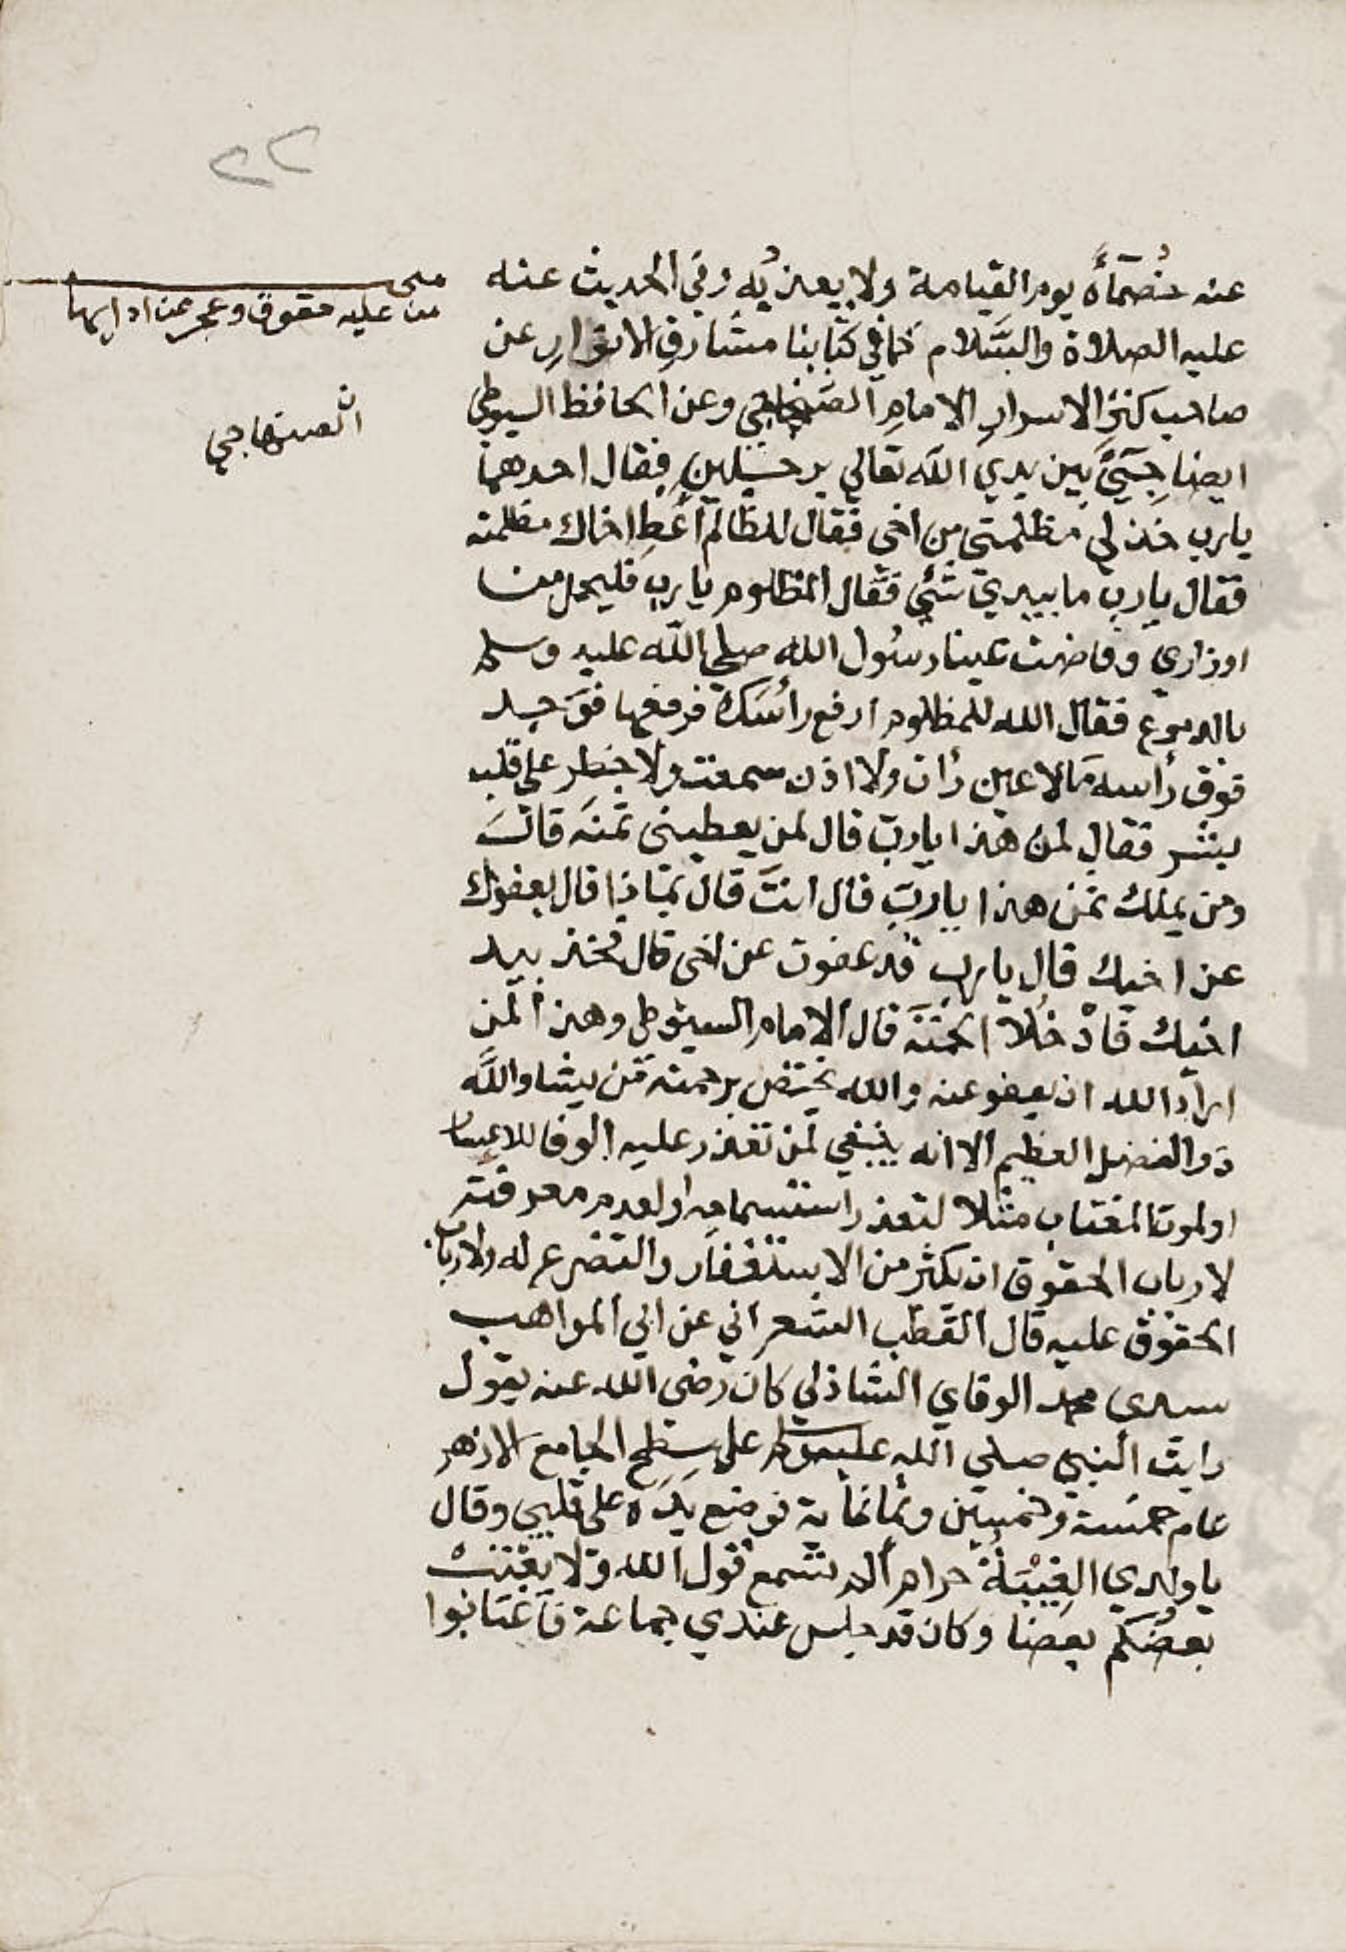 ٢٢
عنه خُصَمَآءَهُ يوم القيامة ولا يعذبُه وفي الحديث عنه
عليه الصلاة والسَّلام كما في كتابنا مشارق الانوار عن
صاحب كنز الاسرار الامام الصنهاجي وعن الحافظ السيوطي
ايضا جِيَئ بين يدي الله تعالي برجلين فقال احدهما
يارب خذ لي مظلمتي من اخي فقال للظالم أعطِ اخاك مظلمته
فقال يارب ما بيدي شئ فقال المظلوم يارب فليحمل من
اوزاري وفاضت عينا رسُول الله صلي الله عليه وسلم
بالدموع فقال الله للمظلوم ارفع رأسَك فرفعها فوَجد
فوق رأسه مَالا عين رأت ولا اذن سمعت ولا خطر علي قلب
بشر فقال لمن هذا يارب قال لمن يعطيني ثمنَه قال
ومن يملك ثمن هذا يارب قال انتَ قال بماذا قال بعفوك
عن اخيك قال يارب قد عفوت عن اخي قال فخذ بيد
اخيك فادْخُلاَ الجنَّة قال الامام السيوطي وهذا لمن
اراد الله ان يعفو عنه والله يختص برحمته من يشاء واللَّه
ذو الفضل العظيم الا انه ينبغي لمن تعذر عليه الوفا للاعيان
او لموت المغتاب مثلا لتعذر استسماحه او لعدم معرفته
لارباب الحقوق ان يكثر من الاستغفار والتضرع له ولارباب
الحقوق عليه قال القطب الشعراني عن ابي المواهب
سيدى محمد الوفاي الشاذلي كان رضى الله عنه يقول
رايت النبي صلي الله عليه وسلم علي سطح الجامع الازهر
عام خمسَة وخمسين وثمانماية فوضع يدَه علي قلبي وقال
يا ولدي الغِيْبَةُ حرام ألم تسمع قول الله ولا يغْتَبْ
بعضُكم بعضا وكان قد جلس عندي جماعة فاغتابوا
من عليه حقوق وعجز عن ادايها
الصنهاجي